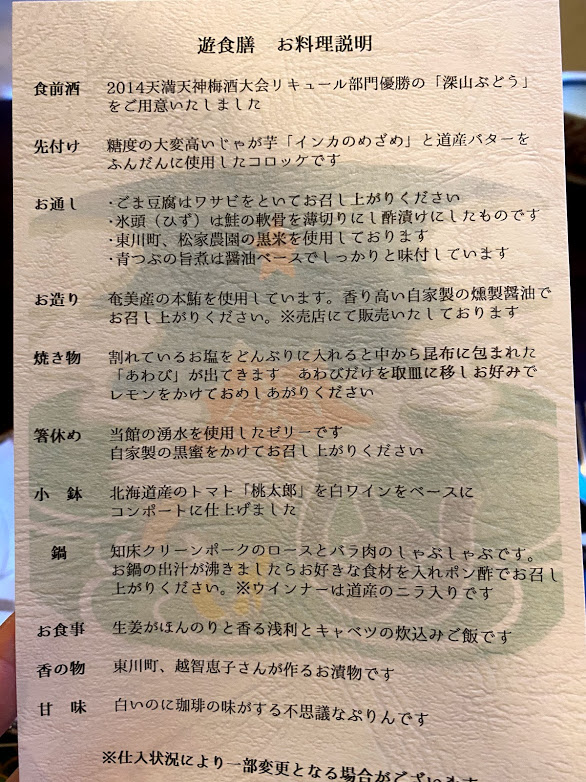 遊食膳　お料理説明
食前酒　2014天満天神梅酒大会リキュール部門優勝の「深山ぶどう」
をご用意いたしました
先付け　糖度の大変高いじゃが芋「インカのめざめ」と道産バターを
ふんだんに使用したコロッケです
お通し　・ごま豆腐はワサビをといてお召し上がりください
・氷頭（ひず）は鮭の軟骨を薄切りにし酢漬けにしたものです
・東川町、松家農園の黒米を使用しております
・青つぶの旨煮は醤油ベースでしっかりと味付しています
お造り　奄美産の本鮪を使用しています。香り高い自家製の燻製醤油で
お召し上がりください。※売店にて販売いたしております
焼き物　割れているお塩をどんぶりに入れると中から昆布に包まれた
「あわび」が出てきます　あわびだけを取皿に移しお好みで
レモンをかけておめしあがりください
箸休め　当館の湧水を使用したゼリーです
自家製の黒蜜をかけてお召し上がりください
小　鉢　北海道産のトマト「桃太郎」を白ワインをベースに
コンポートに仕上げました
鍋　知床クリーンポークのロースとバラ肉のしゃぶしゃぶです。
お鍋の出汁が沸きましたらお好きな食材を入れポン酢でお召し
上がりください。※ウインナーは道産のニラ入りです
お食事　生姜がほんのりと香る浅利とキャベツの炊込みご飯です
香の物　東川町、越智恵子さんが作るお漬物です
甘　味　白いのに珈琲の味がする不思議なぷりんです
※仕入状況により一部変更となる場合がござい